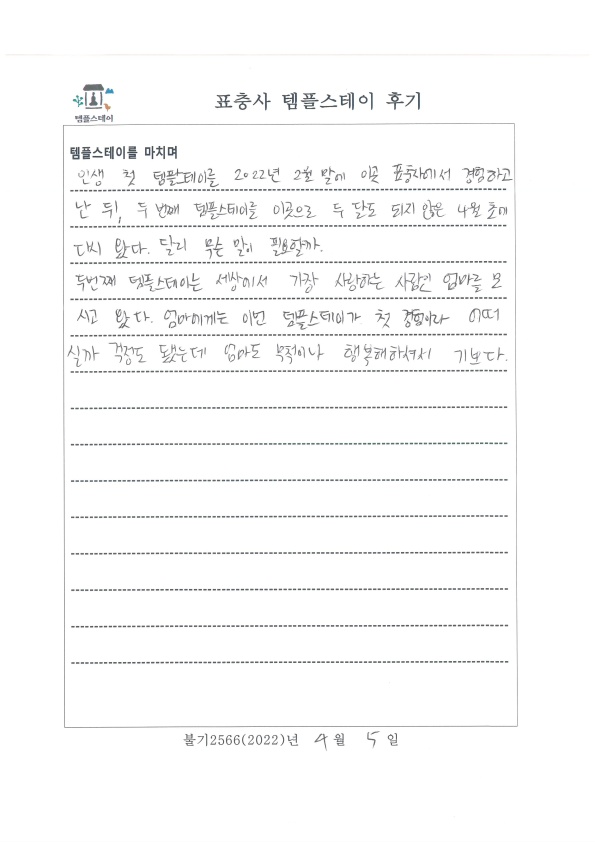 템플스테이
표충사 템플스테이 후기
템플스테이를 마치며
인생 첫 템플스테이를 2022년 2월 말에 이곳 표충사에서 경험하고
난 뒤, 두 번째 템플스테이를 이곳으로 두 달도 되지 않은 4월 초에
다시 왔다. 달리 무슨 말이 필요할까.
두번째 템플스테이는 세상에서 가장 사랑하는 사람인 엄마를 모
시고 왔다. 엄마에게는 이번 템플스테이가 첫 경험이라 어떠
실까 걱정도 됐는데 엄마도 무척이나 행복해하셔서 기쁘다.
불기2566(2022)년 4월 5일